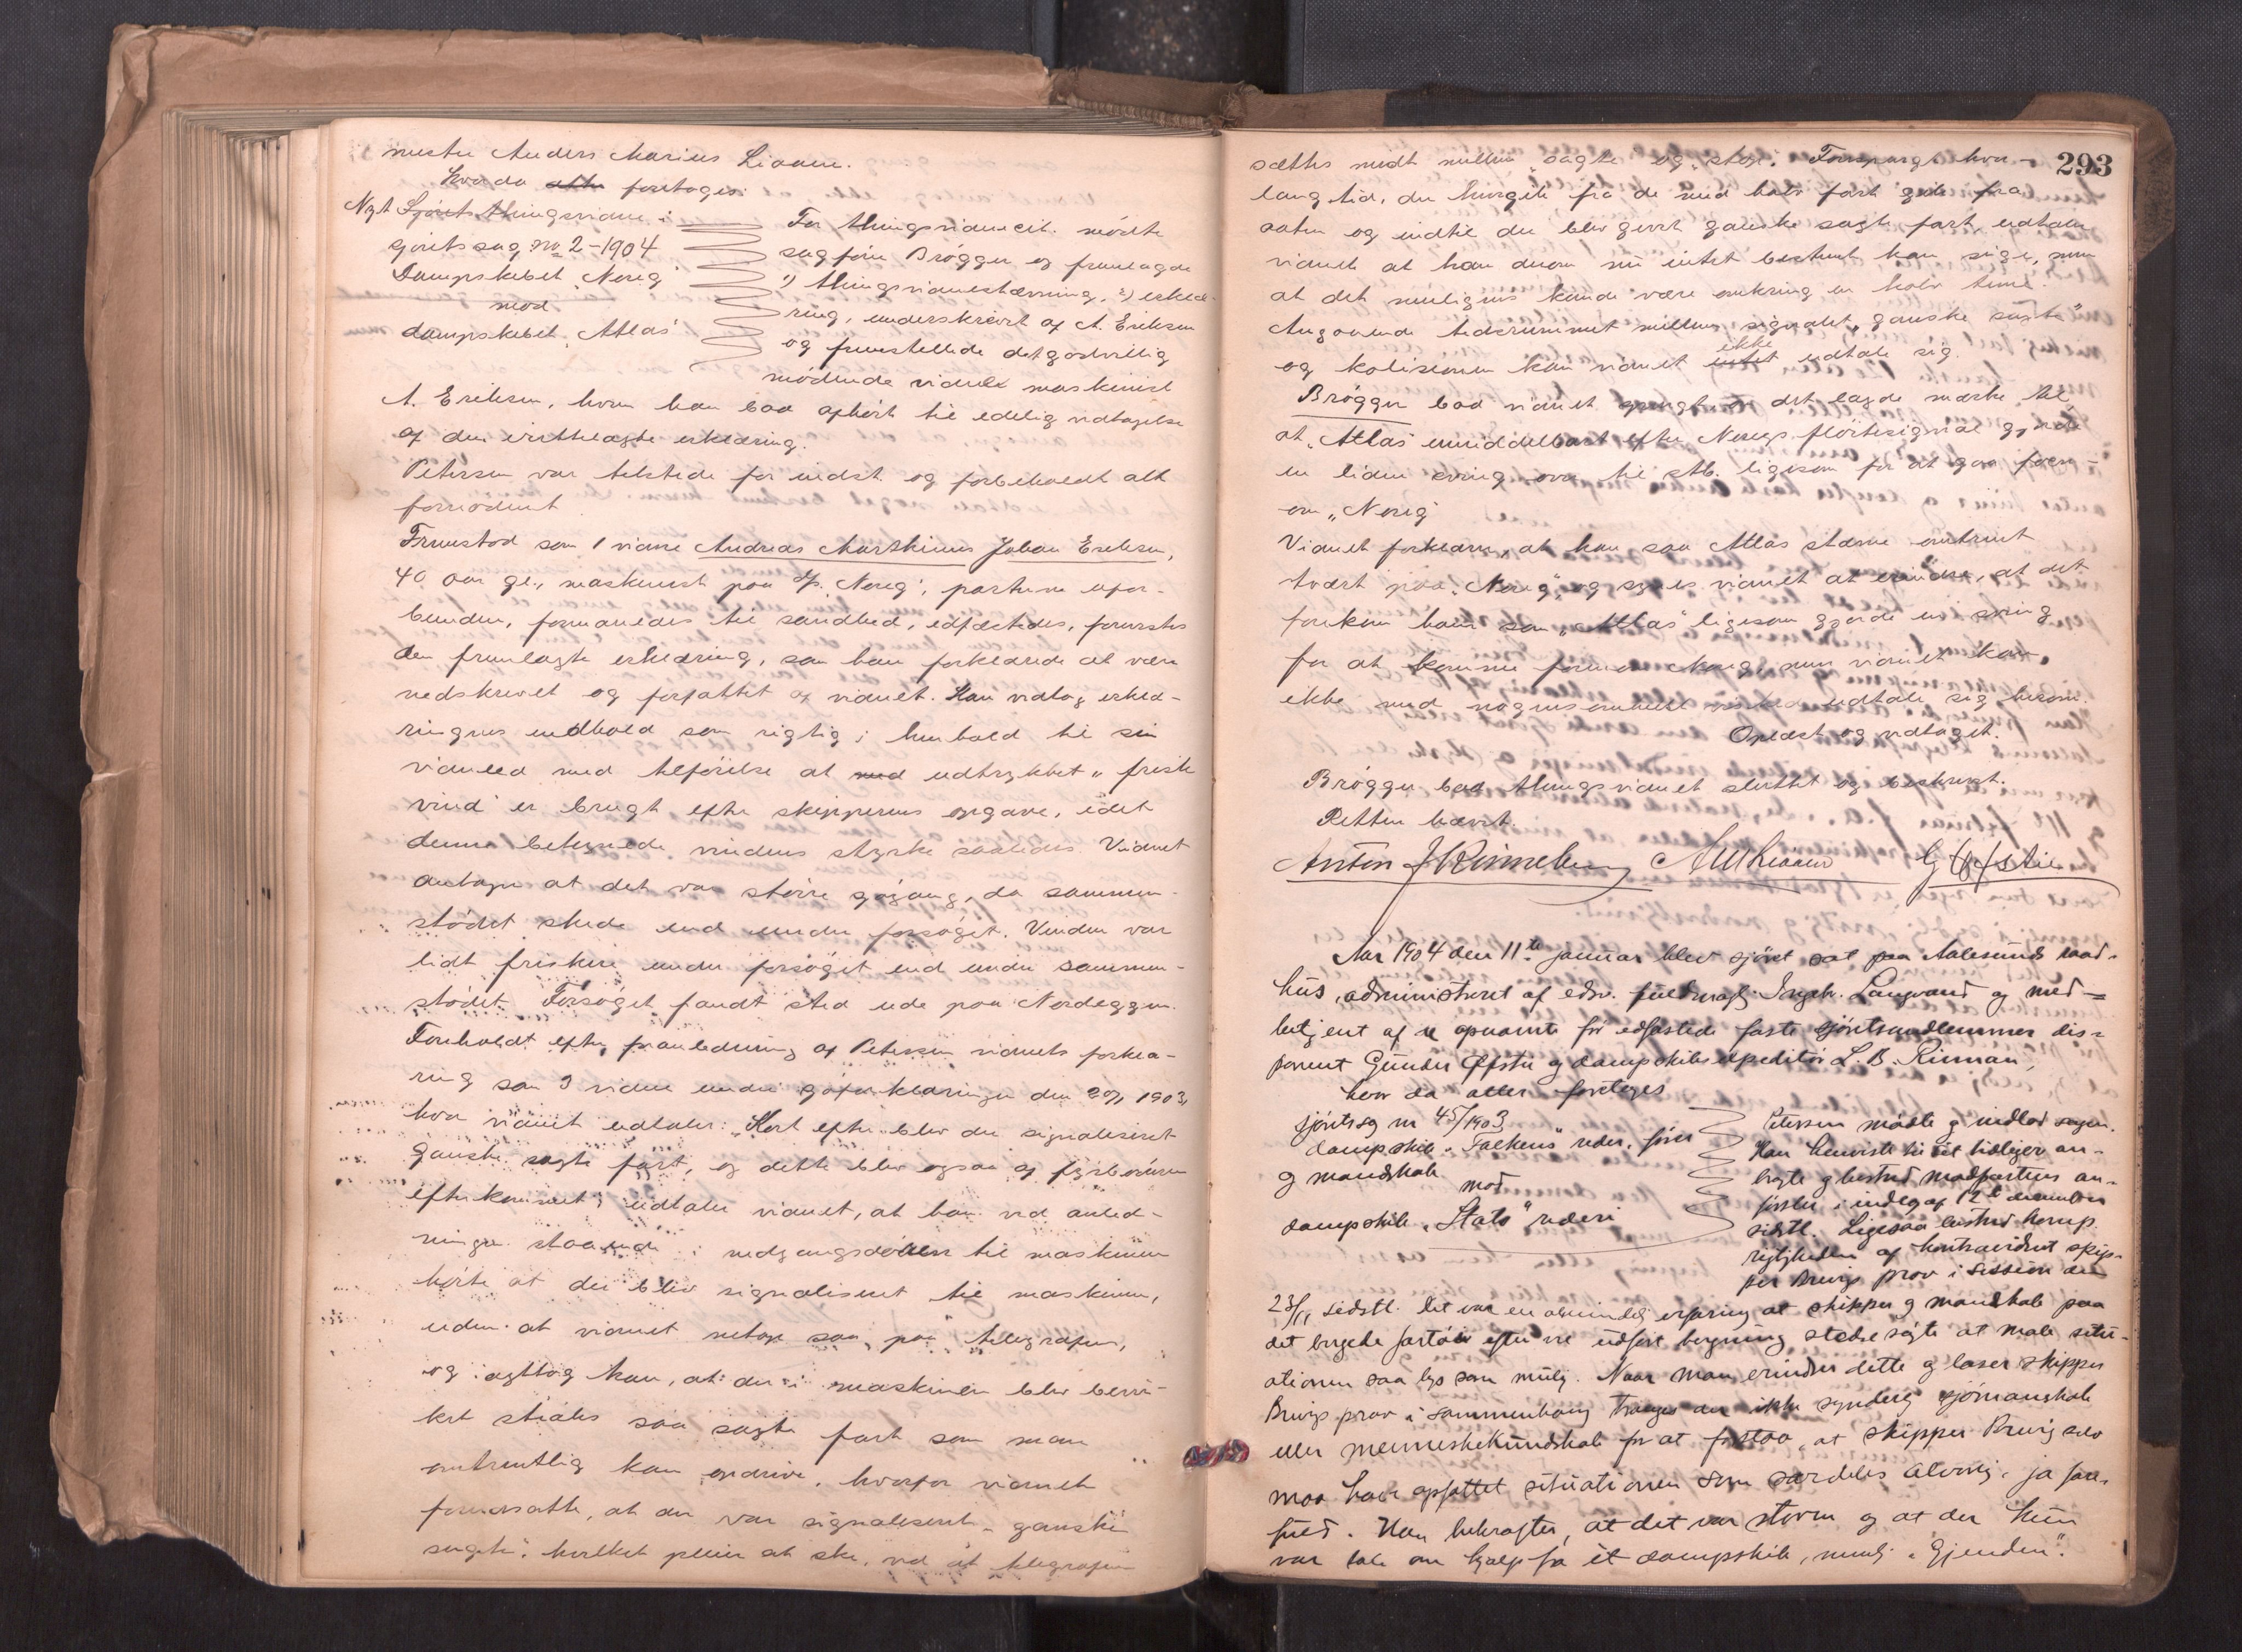 mester Anders Marius Liaaen.
Hvor da foretoges:
Nyt Sjörets thingsvidne i
sjöretssag No 2-1904
Dampskibet "Noreg"
mod
dampskibet "Atlas"
For thingsvidnecit. mödte
sagförer Brögger og fremlagde
1) thingsvidnestævning, 2) erklæ-
ring, underskrevet af A. Eriksen
og fremstillede det godvillig
mödende vidne maskinist
A. Eriksen, hvem han bad afhört til edelig vedtagelse
af den irettelagte erklæring.
Petersen var tilstede for indst. og forbeholdt alt
fornödent.
Fremstod som 1 vidne Andreas Marthinus Johan Eriksen,
40 aar gl., maskinist paa D/s. "Noreg", parterne ufor-
bunden, formanedes til sandhed, edfæstedes, forevistes
den fremlagte erklæring, som han forklarede at være
nedskrevet og forfattet af vidnet. Han vedtog erklæ-
ringens indhold som rigtig i henhold til sin
vidneed med tilföielse at udtrykket "frisk
vind" er brugt efter skipperens opgave, idet
denne betegnede vindens styrke saaledes. Vidnet
antager at det var större sjögang, da sammen-
stödet skede end under forsöget. Vinden var
lidt friskere under forsöget end under sammen-
stödet. Forsöget fandt sted ude paa Nordeggen.
Foreholdt efter foranledning af Petersen vidnets forkla-
ring som 3 vidne under söforklaringen den 1903,
hvor vidnet udtaler: "Kort efter blev der signaliseret
ganske sagte fart, og dette blev ogsaa af fyrböteren
efterkommet", udtaler vidnet, at han ved anled-
ningen staaende i nedgangsdören til maskinen
hörte at der blev signaliseret til maskinen,
uden at vidnet netop saa paa telegrafen,
og iagttog han, at der i maskinen blev bevir-
ket straks saa sagte fart som man
omtrentlig kan opdrive, hvorfor vidnet
forudsatte, at der var signaliseret "ganske
sagte", hvilket pleier at ske, ved at telegrafen
293
sættes midt mellem "sagte" og "stop". Forspurgt hvor-
lang tid, der hengik fra de med halv fart gik fra
saten og indtil der blev givet ganske sagte fart, udtaler
vidnet at han derom nu intet bestemt kan sige, men
at det muligens kunde være omkring en halv time.
Angaaende tidsrummet mellem signalet "ganske sagte"
og kolisionen kan vidnet ikke udtale sig.
Brögger bad vidnet spurgt om det lagde mærke til
at "Atlas" umiddelbart efter Noregs flöitesignal gjorde
en liden sving over til stb. ligesom for at gaa foran-
om "Noreg"
Vidnet forklarer, at han saa Atlas stævne omtrent
tvært paa "Noreg", og synes vidnet at erindre, at det
forekom ham som "Atlas" ligesom gjorde en sving
for at komme foranom Noreg, men vidnet kan
ikke med nogensomhelst vished udtale sig herom.
Oplæst og vedtaget.
Brögger bad thingsvidnet sluttet og beskrevet.
Retten hævet.
Anton J Rinneberg A M Liaaen G Öfstie
Aar 1904 den 11te januar blev sjöret sat paa Aalesunds raad-
hus, administreret af edsv. fuldmægt. Ingebr. Langvand og med-
betjent af de opnævnte för edfæstede faste sjöretsmedlemmer dis-
ponent Gunder Öfstie og dampskibsexpeditör L. B. Rinnan,
hvor da atter foretoges
sjöretssag nr 45/1903
dampskib "Falkens" rederi, förer
og mandskab mod
dampskib "Stato" rederi
Petersen mödte og indlod sagen.
Han henviste til sit tidligere an-
bragte og bestred modpartens an-
försler i indlæg af 12te december
sidstl. Ligesaa bestred komp.
rigtigheden af kontravidnet skip-
per Brevigs prov i session den
23/11 sidstl. Det var en almindelig erfaring at skipper og mandskab paa
det bergede fartöi efter vel udfört bergning stedse sögte at male situ-
ationen saa lys som mulig. Naar man erindrer dette og læser skipper
Brevigs prov i sammenhæng trænges der ikke synderlig sjömandskab
eller menneskekundskab for at forstaa, at skipper Brevig selv
maa have opfattet situationen som særdeles alvorlig, ja fare-
fuld. Han bekræfter, at det var storm og at der kun
var tale om hjælp fra et dampskib, nemlig "Gjenden".